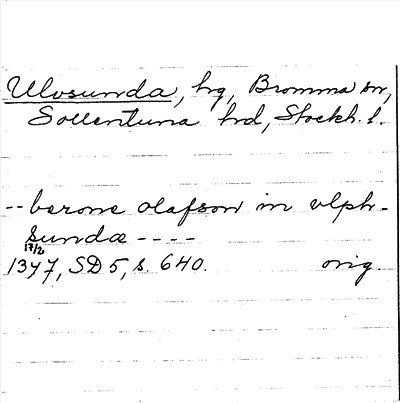 Ulvsunda, hg, Bromma sn,
Sollentuna hd, Stockh. l.
-- berone olafson in vlph-
sunda ----
17/2
1347, SD 5, s. 640. orig.